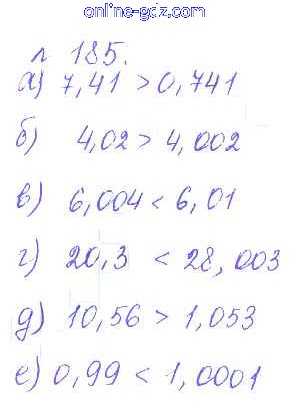 online-gdz.com
л 185.
а) 7,41 > 0,741
б) 4,02 > 4,002
в) 6,004 < 6,01
г) 20,3 < 28,003
д) 10,56 > 1,053
е) 0,99 < 1,0001